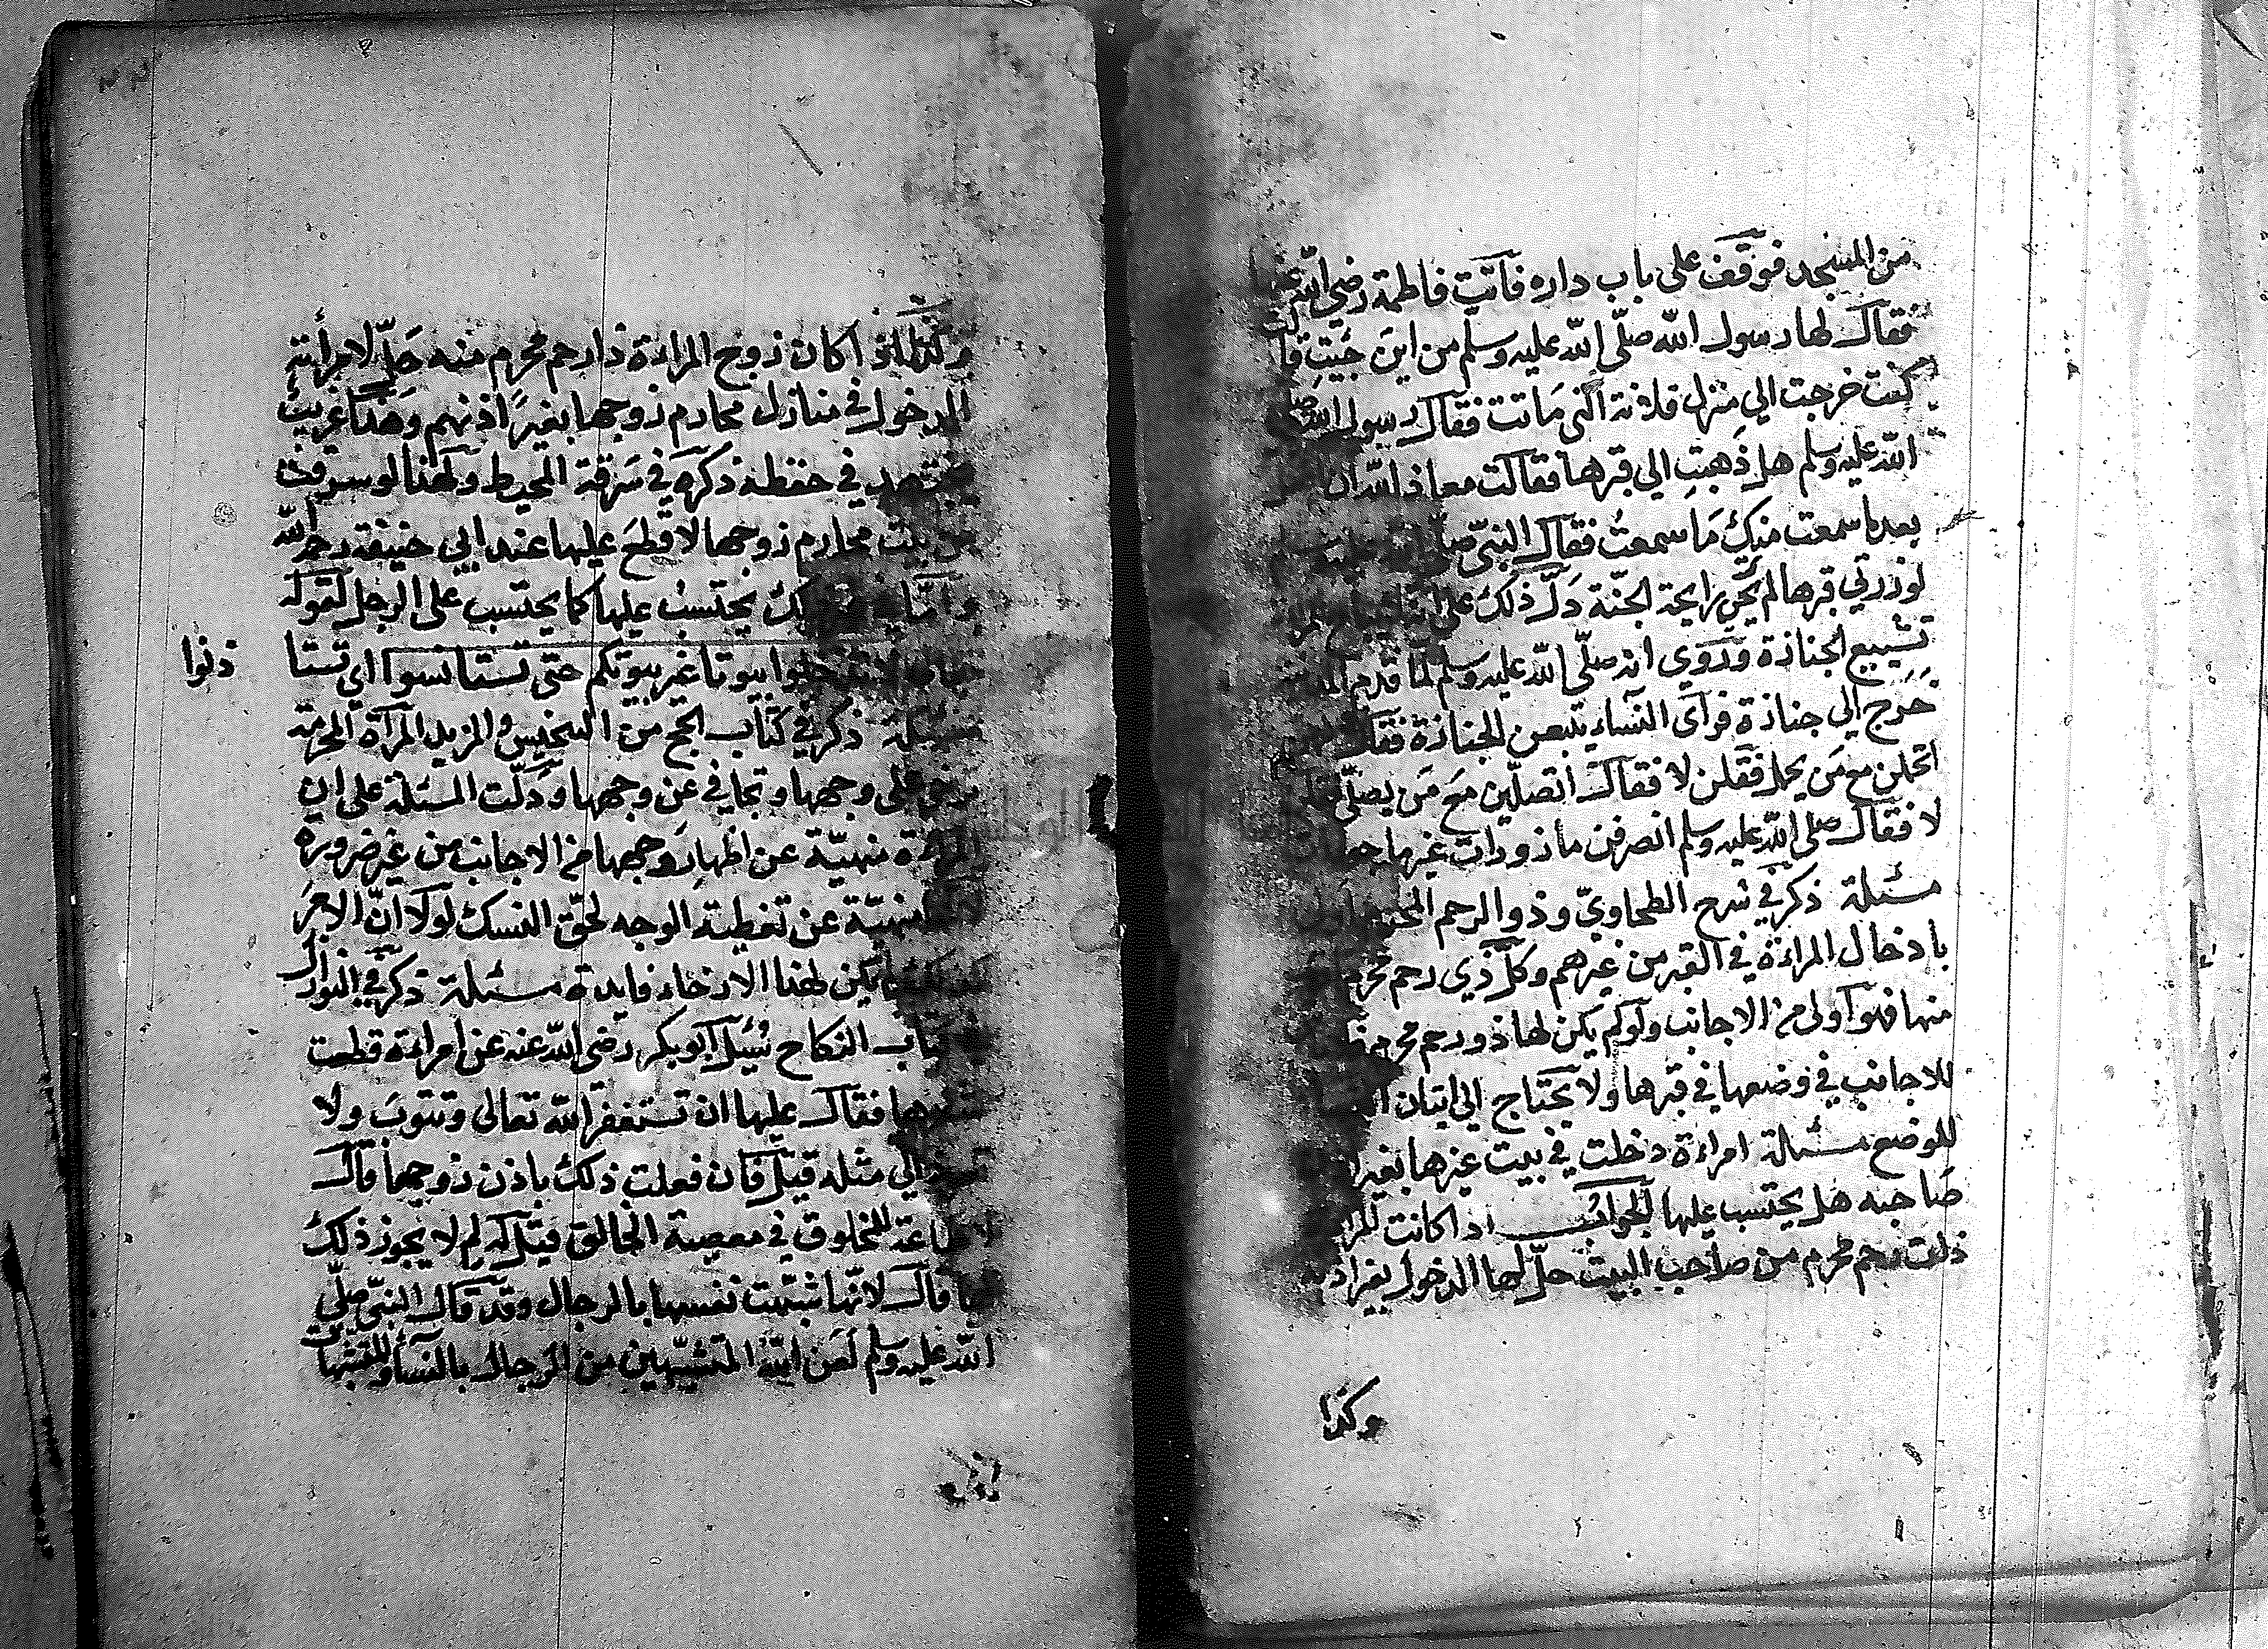 من المسجد فوقف على باب داره فاتت فاطمة رضي الله عنها
فقال لها رسول الله صلّى الله عليه وسلم من اين جئتِ قالت
كنت خرجت الي منزل فلانة الّتي مَاتت فقال رسول الله صلى
الله عليه وسلم هل ذهبتِ الي قبرها فقالت معاذ الله ان
بعد ما سمعت منك مَا سمعتُ فقال النبيّ صلّى الله عليه
لو زرتي قبرها لم تَجِي رايحة الجنّة دَلّ ذلك على
تشييع الجنازة ورُوي انه صلّى الله عليه وسلم لمّا قدم
خَرَج الي جنازة فرآى النّساء يتبعن الجنازة فقال
اتحملن مع مَن يحمل فقلن لا فقال اتصلّين مَع مَن يصلّي
لا فقال صلى الله عليه وسلم انصرفن مازورات غير ماجورات
مسئلة ذكر في شرح الطحاويّ وذوا الرحم
با دخال المراءة في القبر من غيرهم وكلّ ذي رحم محرم
منها فهوا اولى من الاجانب ولو لم يكن لها ذو رحم محرم
للاجانب في وضعها في قبرها ولا يحتاج الي اتيان
للوضع مسئلة امراءة دخلت في بيت غيرها بغير
صَاحبه هل يحتسب عليها الجواب اذا كانت
ذات رحم محرم من صاحب البيت حلّ لها الدخول بغير
وكذا
وكذلك اذا كان زوج المراءة ذا رحم محرم منه حَلّ لامرأته
الدخول في منازل محارم زوجها بغير اذنهم وهذا غريب
في حفظه ذكره في سَرقة المحيط ولهذا لو سرقت
من بيت محارم زوجها لا قطعَ عليها عند ابي حنيفة رحمه الله
يحتسبُ عليها كما يحتسب على الرجل لقوله
بيوتا غير بيوتكم حتى تستانسوا اي تستا
ذنوا
مسئلة ذكر في كتاب الحج من التجنيس والمزيد المرآة المحرمة
على وجهها وتجافي عن وجهها ودَلّت المسئلة على ان
منهيّة عن اظهار وجهها من الاجانب من غير ضرورة
منهيّة عن تغطية الوجه لحقّ النسك لولا انّ الامر
يكن لهذا الارخاء فايدة مسئلة ذكر في النوازل
النكاح سُئِل ابو بكر رضى الله عنه عن امراءة قطعت
فقال عليها ان تستغفر الله تعالى وتتوبَ ولا
الي مثله قيل فان فعلت ذلك باذن زوجها قال
لا طاعة للمخلوق في معصية الخالق قيل له لم لا يجوز ذلك
قال لانّها شبّهت نفسها بالرجال وقد قال النبيّ صلّى
الله عليه وسلم لَعن الله المتشبّهين من الرّجال بالنّساء والمتشبهات